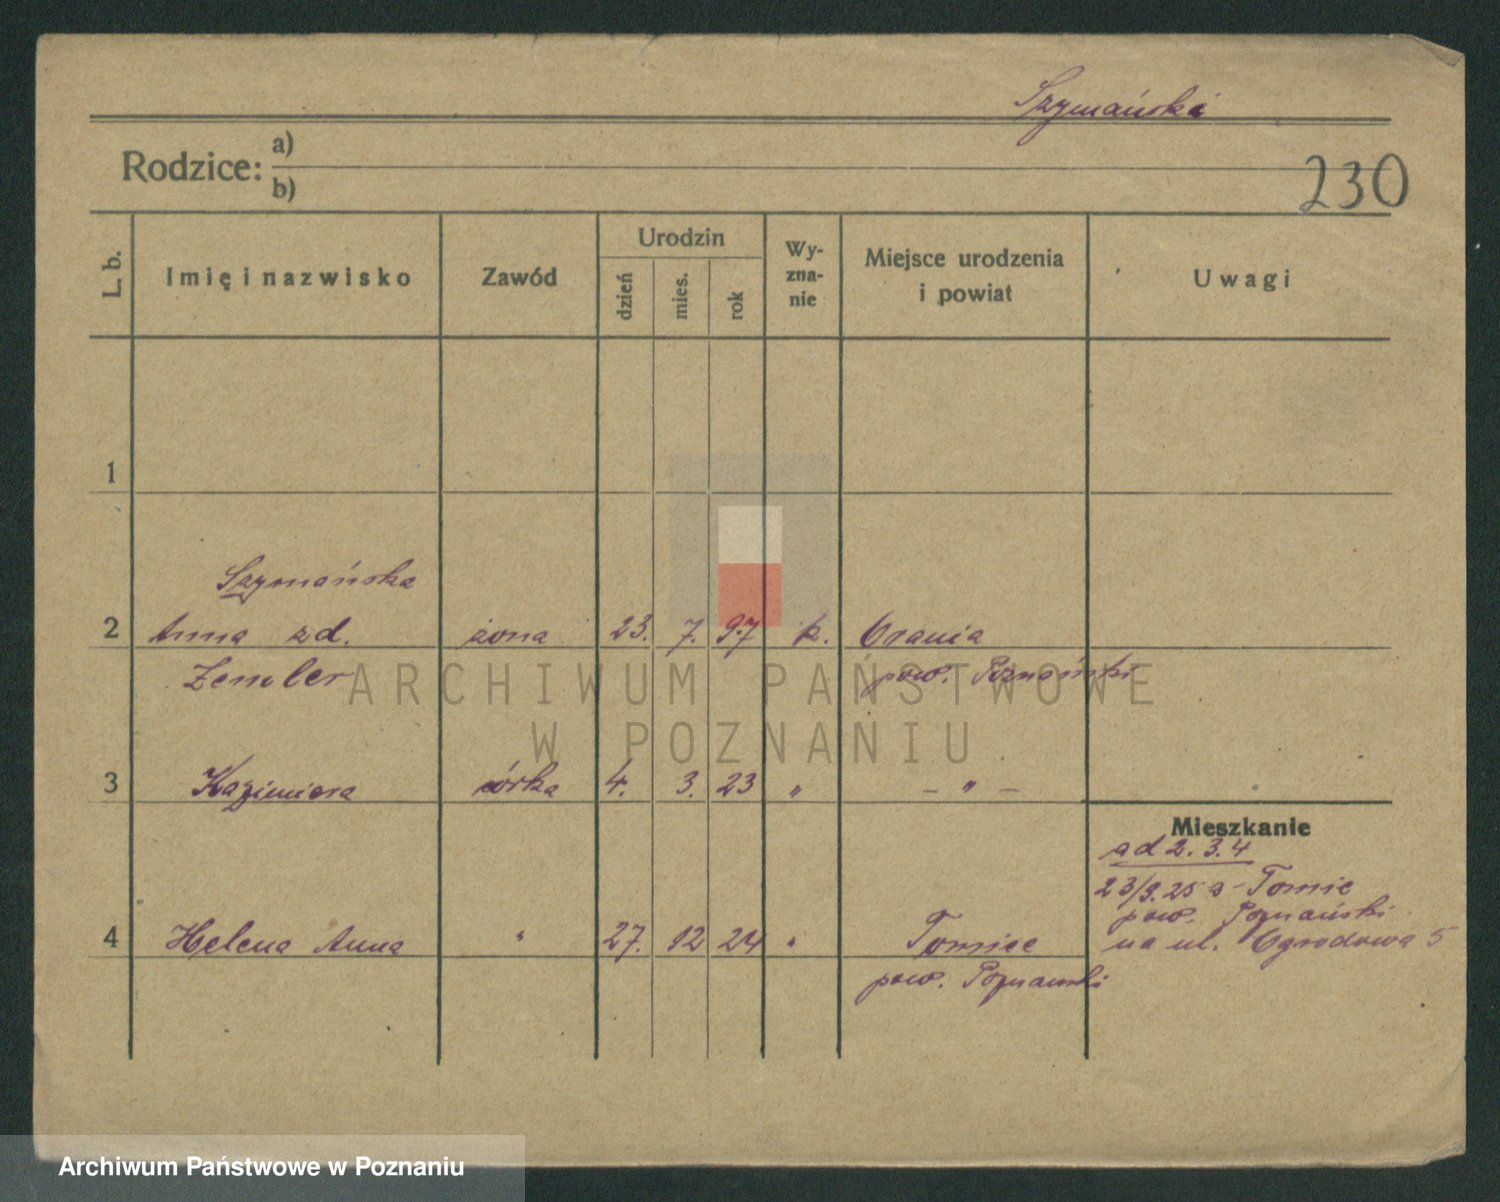 Szymański
Rodzice: a)
b)
230
L. b.
Imię i nazwisko
Zawód
Urodzin
dzień
mies.
rok
Wy-
zna-
nie
Miejsce urodzenia
i powiat
Uwagi
1
Szymańska
2 Anna zd. żona 23. 7. 97 k.
Zemler pow. Poznański
ARCHIWUM PAŃSTWOWE
W POZNANIU
3 Kazimiera córka 4. 3. 23 " – " –
Mieszkanie
ad 2. 3. 4
23/9. 25 Tomic
pow. Poznański
na ul. Ogrodowa 5
4 Helena Anna " 27. 12 24 " Tomice
pow. Poznański
Archiwum Państwowe w Poznaniu